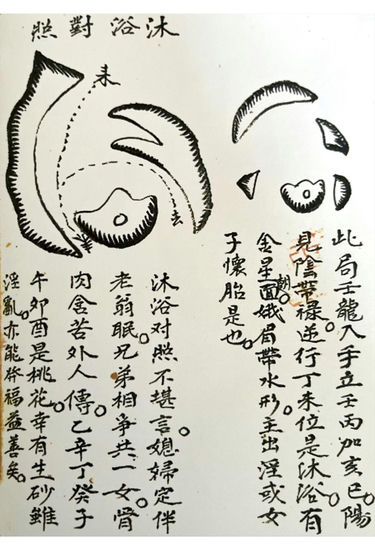 沐浴對照
来
去
此局壬龍入手立壬丙加亥巳。陽
見陰帶祿。逆行丁未位是沐浴。有
金星面朝。娥眉帶水形。主出淫或女
子懷胎是也。
沐浴对照不堪言。媳婦定伴
老翁眠。兄弟相爭共一女。骨
肉含苦外人傳。乙辛丁癸子
午卯酉是桃花。幸有生砂雖
淫亂。亦能發福益善矣。